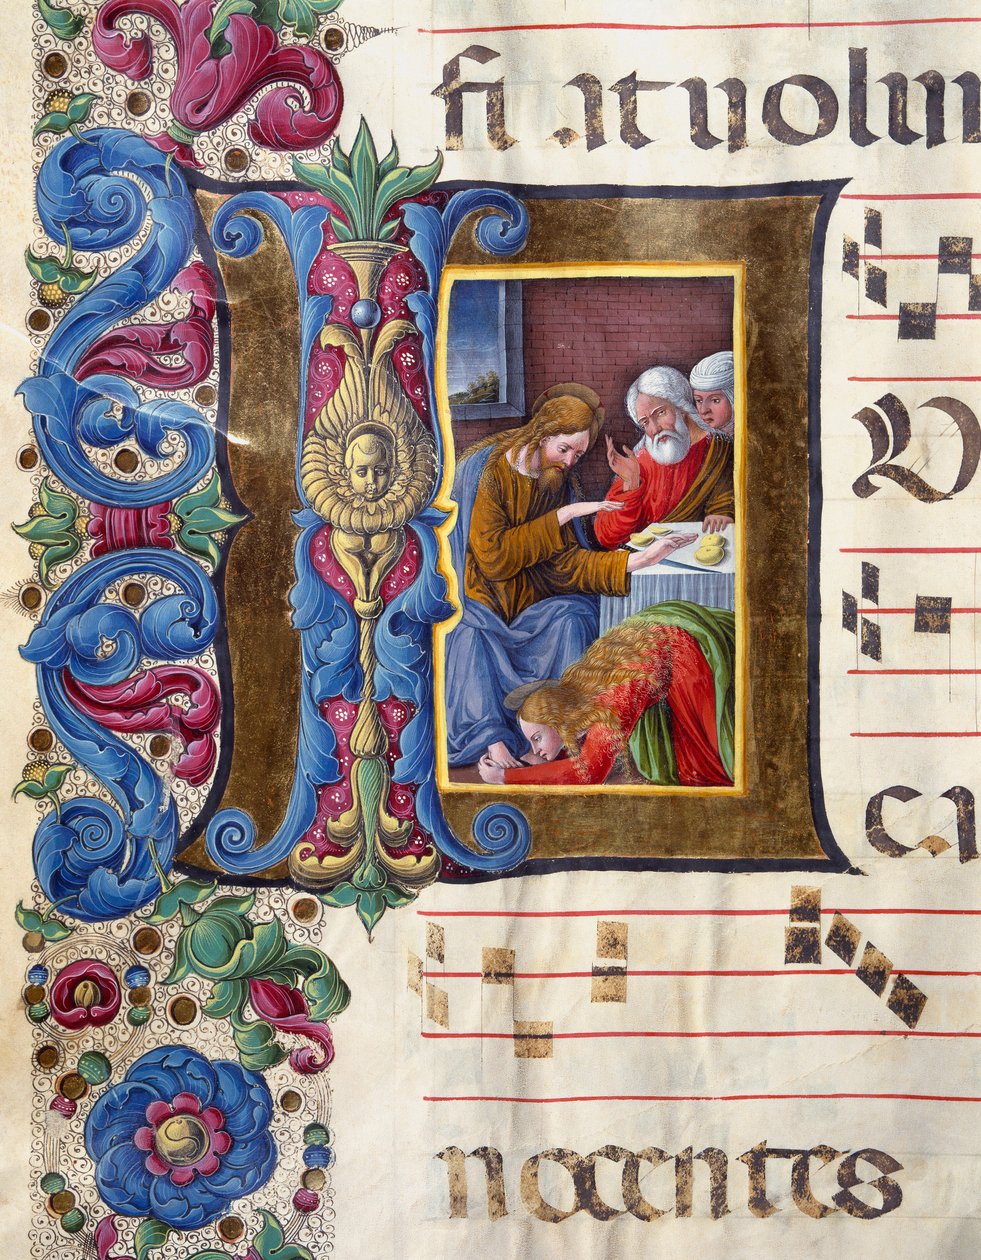 fi at uolun
V
ca
nocentes